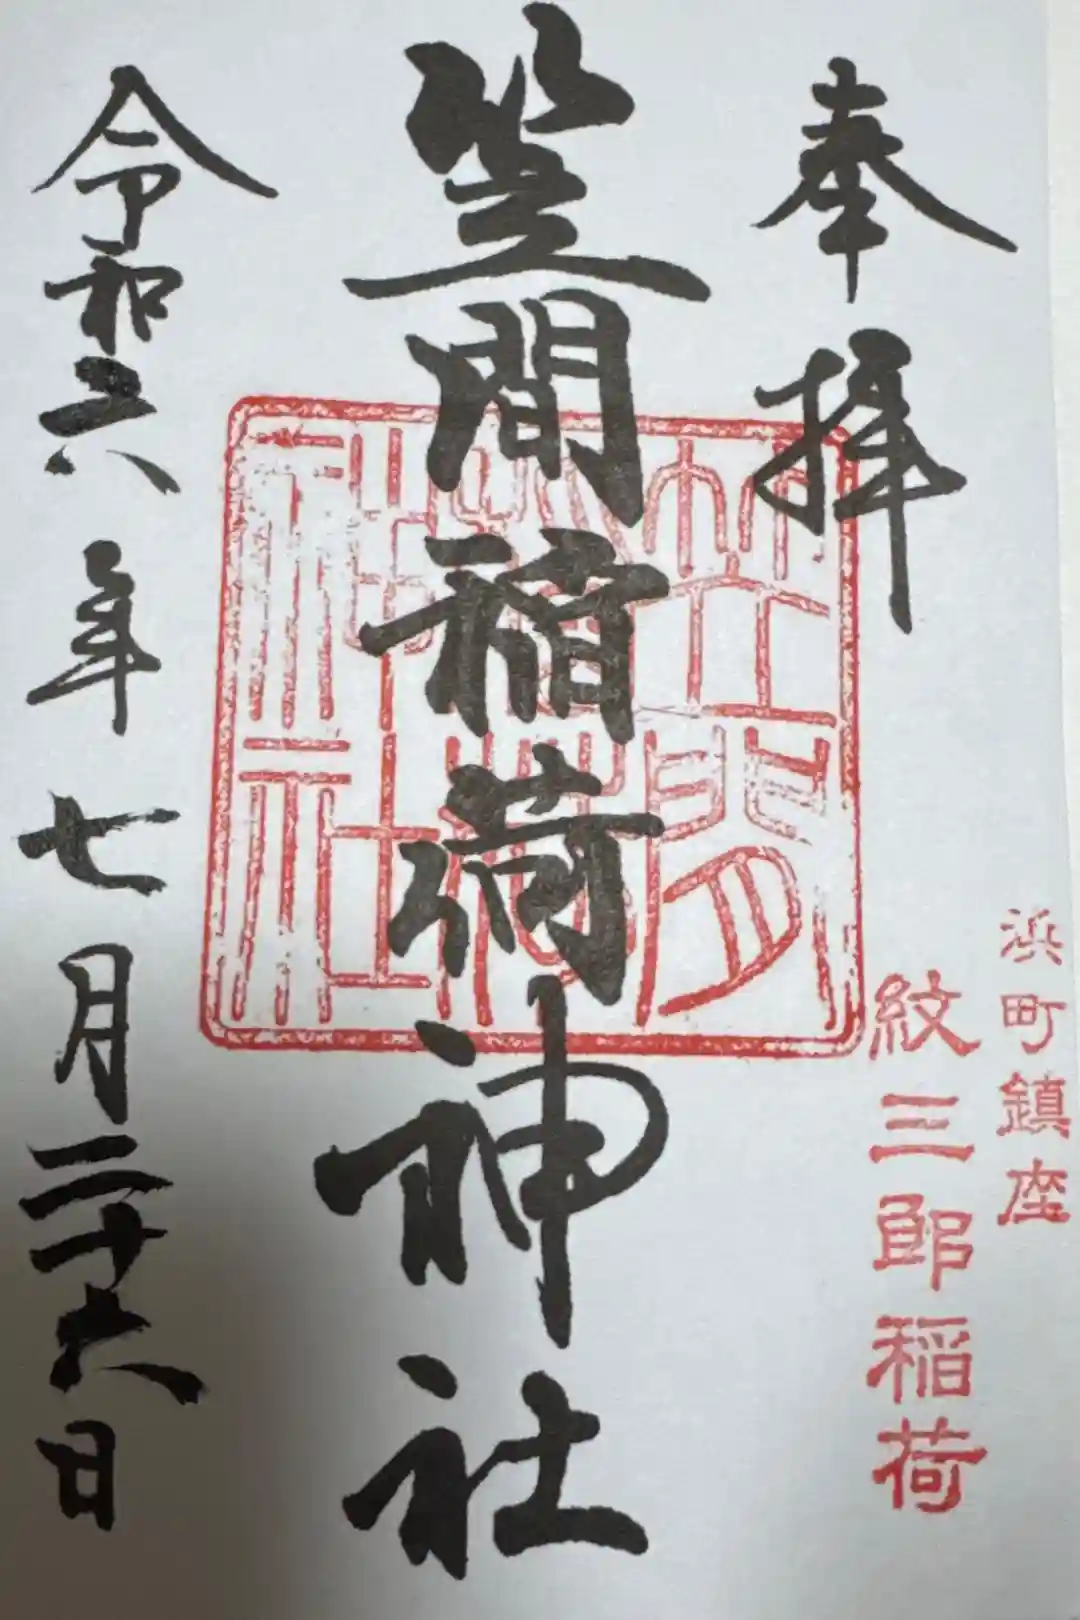 奉拝
浜町鎮座
紋三郎稲荷
笠間稲荷神社
笠間稲荷神社
令和六年七月二十六日